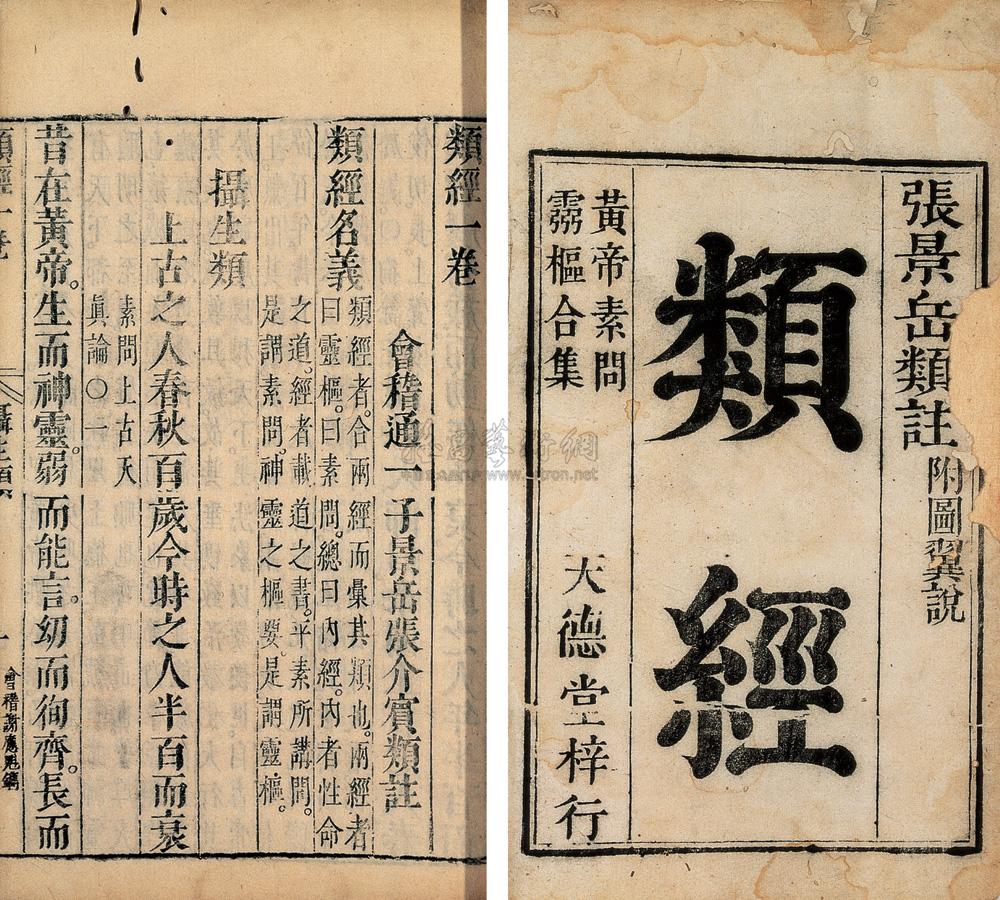 張景岳類註附圖翼說
類經
黃帝素問
霛樞合集
天德堂梓行
類經一卷
會稽通一子景岳張介賓類註
類經名義
類經者。合兩經而彙其類也。兩經者
曰靈樞。曰素問。總曰內經。內者性命
之道。經者載道之書。平素所講問。
是謂素問。神靈之樞要。是謂靈樞。
攝生類
上古之人春秋百歲今時之人半百而衰
素問上古天
眞論○一
昔在黃帝。生而神靈。弱而能言。幼而徇齊。長而
類經一卷
攝生類
一
會稽謝應魁鐫
雅昌藝術網